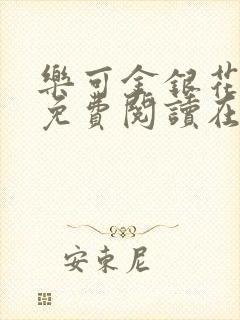 樂可金銀花
免費閱讀在
安東尼